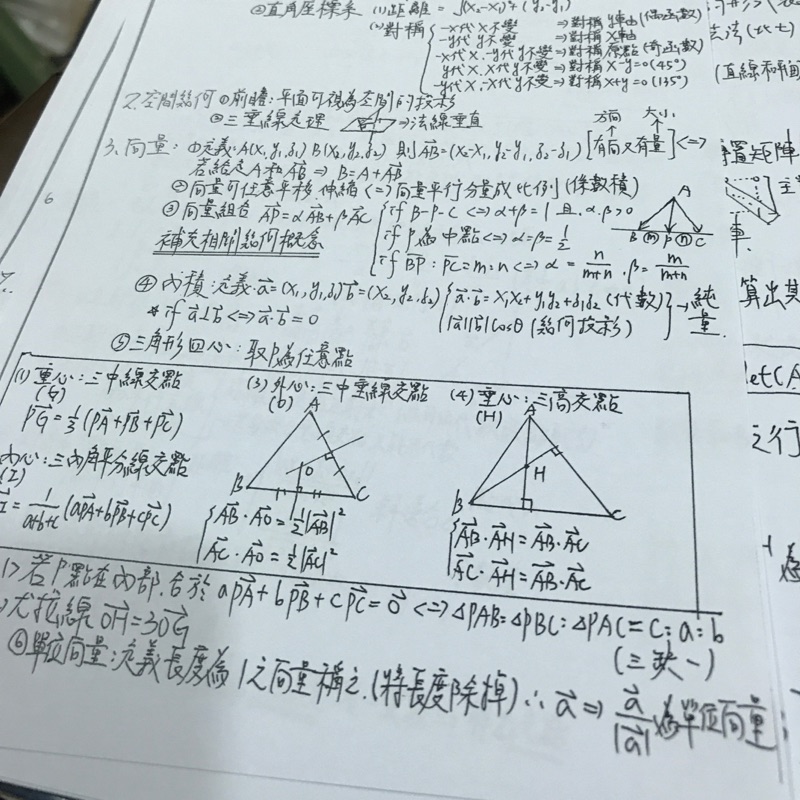 ②直角座標系 (1)距離 = √(x₂-x₁)²+(y₂-y₁)
(2)對稱
-x代x不變 ⇒對稱y軸(偶函數)
-y代y不變 ⇒對稱x軸
-x代x、-y代y不變⇒對稱原點(奇函數)
y代x、x代y不變⇒對稱x-y=0(45°)
-y代x、-x代y不變⇒對稱x+y=0(135°)
2.空間幾何①前瞻:平面可視為空間的投影
②三垂線定理 ⇒法線垂直
方向 大小
3.向量:①定義:A(x₁,y₁,z₁) B(x₂,y₂,z₂) 則AB=(x₂-x₁,y₂-y₁,z₂-z₁) [有向又有量]<=>
若給定A和AB ⇒ B=A+AB
②向量可任意平移、伸縮<=>向量平行分量成比例(係數積)
③向量組合 AP=αAB+βAC
if B-P-C <=> α+β=1 且 α.β>0
if P為中點<=>α=β=1/2
if BP:PC=m:n<=>α=n/(m+n).β=m/(m+n)
補充相關幾何概念
A
B m P n C
④內積:定義:a=(x₁,y₁,z₁)b=(x₂,y₂,z₂)
a·b=x₁x₂+y₁y₂+z₁z₂(代數)
|a||b|cosθ(幾何投影)
→純量
*if a⊥b<=>a·b=0
⑤三角形四心:取P為任意點
(1)重心:三中線交點
(G)
PG=1/3(PA+PB+PC)
內心:三內角平分線交點
(I)
I=1/(a+b+c)(aPA+bPB+cPC)
(3)外心:三中垂線交點
(O)
A
O
B C
AB·AO=1/2|AB|²
AC·AO=1/2|AC|²
(4)垂心:三高交點
(H)
A
H
B C
AB·AH=AB·AC
AC·AH=AB·AC
1>若P點在內部.合於aPA+bPB+cPC=0<=>△PAB:△PBC:△PAC=c:a:b
(三缺一)
尤拉線OH=3OG
⑥單位向量:定義長度為1之向量稱之.(將長度除掉)∴a⇒a/|a|為單位向量
6
置矩陣
算出其
det(A
之行